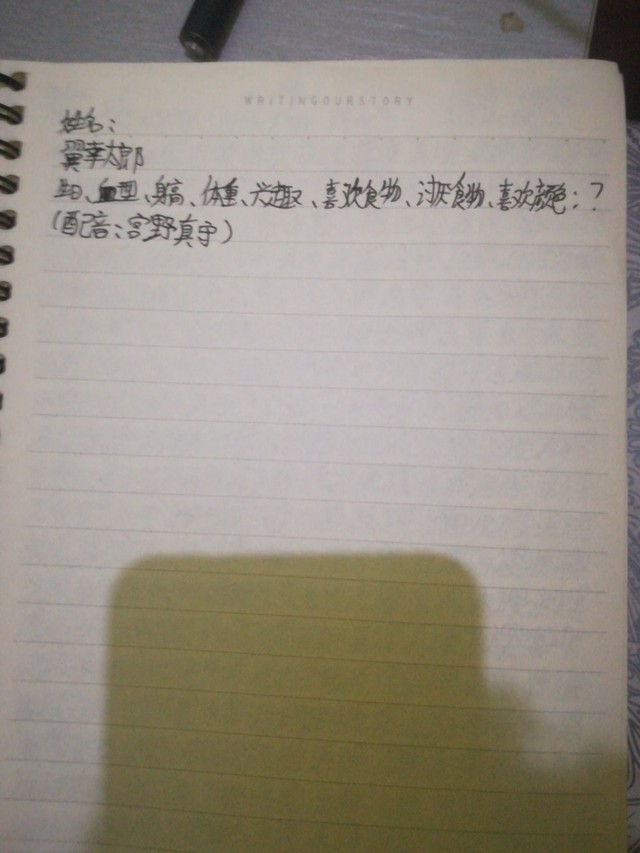 WRITINGOURSTORY
姓名：
翼幸太郎
生日、血型、身高、体重、兴趣、喜欢食物、讨厌食物、喜欢颜色：？
(配音：宫野真守)